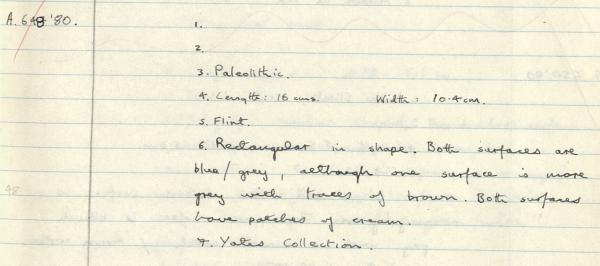 A.648'80.
1.
2.
3. Paleolithic.
4. Length: 16 cms. Width: 10.4cm.
5. Flint.
6. Rectangular in shape. Both surfaces are
blue/grey, although one surface is more
grey with traces of brown. Both surfaces
have patches of cream.
7. Yates Collection.